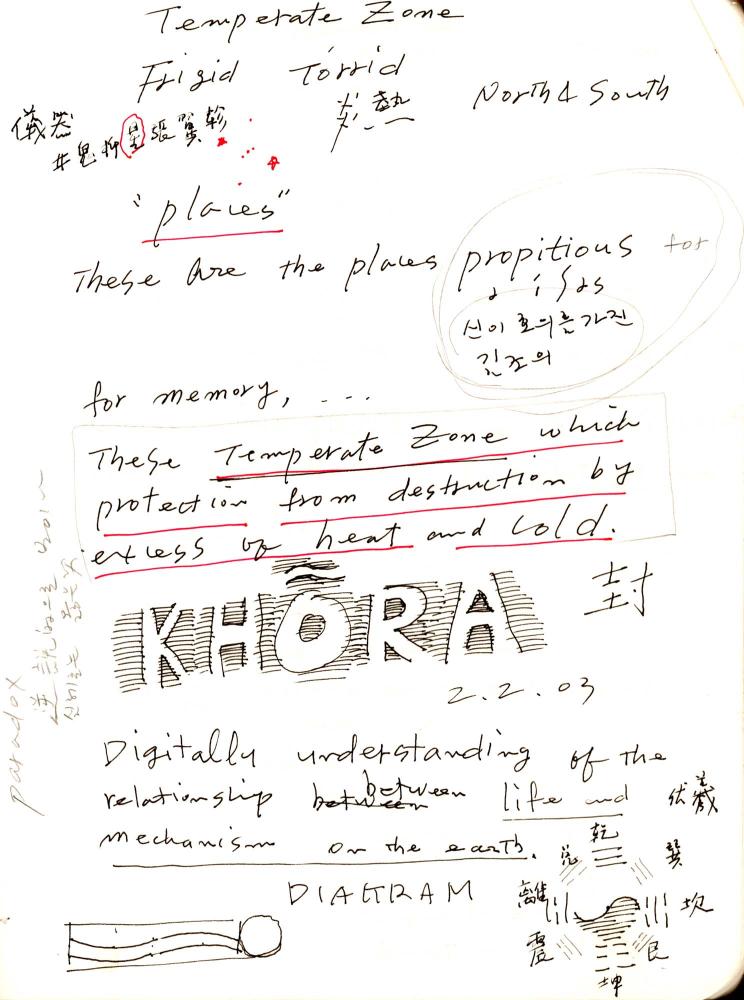 Temperate Zone
Frigid Torrid
North & South
儀器
井鬼柳星張翼軫
"places"
These are the places propitious for
신이 호의를 가진
길조의
for memory, ...
These Temperate Zone which
protection from destruction by
excess of heat and cold.
paradox
逆説的으로
KHŌRA
封
2.2.03
Digitally understanding of the
relationship between between life and
mechanism on the earth.
DIAGRAM
伏羲
乾
兌
巽
離
坎
震
艮
坤